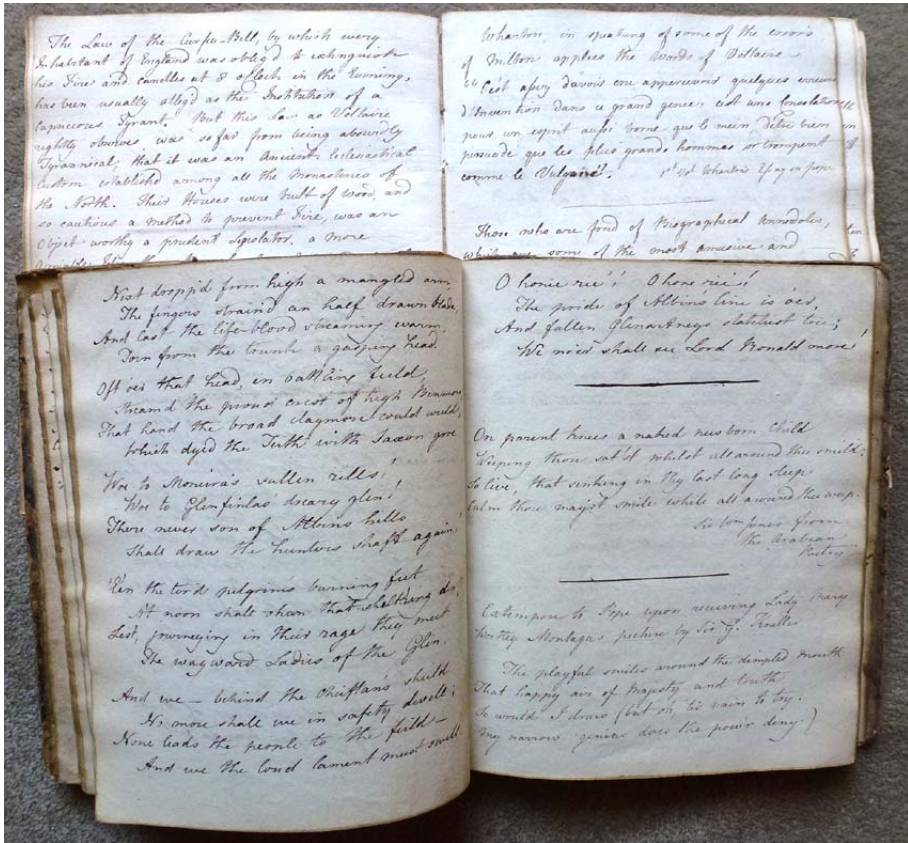 The Law of the Curfew-Bell, by which every
Inhabitant of England was oblig'd to extinguish
his Fire and candles at 8 o'clock in the Evening,
has been usually alleg'd as the Institution of a
capricious Tyrant. But this Law as Voltaire
rightly observes was so far from being absurdly
Tyrannical, that it was an Ancient Ecclesiastical
Custom established among all the Monasteries of
the North. Their Houses were built of wood, and
so cautious a method to prevent Fire, was an
Object worthy a prudent Legislator. a more
Wharton, in speaking of some of the errors
of Milton applies the words of Voltaire
"C'est assez d'avoir cru appercevoir quelques erreurs
d'Invention dans ce grand genie; c'est une Consolation
pour un esprit aussi borné que le mien, d'etre bien
persuadé que les plus grands hommes se trompent
comme le Vulgaire".
1st Vol Wharton's Essay on Pope
Those who are fond of Biographical Annecdotes,
which are some of the most amusive and
Next dropp'd from high a mangled arm,
The fingers strain'd an half drawn blade,
And last the life-blood streaming warm,
Torn from the trunk a gasping head.
Oft o'er that head, in battling field,
Stream'd the proud crest of high Benmore
That hand the broad claymore could wield,
Which dyed the Teith with Saxon gore
Woe to Moneira's sullen rills!
Woe to Glenfinlas' dreary glen!
There never son of Albin's hills
Shall draw the hunters shaft again!
E'en the tir'd pilgrim's burning feet
At noon shall shun that shelt'ring den,
Lest, journeying in their rage they meet
The wayward Ladies of the Glen.
And we — behind the chieftan's shield
No more shall we in safety dwell;
None leads the people to the field —
And we the loud lament must swell.
O hone rie'! O hone rie'!
The pride of Albins line is o'er,
And fallen Glenartneys stateliest tree;
We ne'er shall see Lord Ronald more!
On parent knees a naked new born Child
Weeping thou sat'st whilst all around thee smil'd;
So live, that sinking in thy last long sleep
Calm thou mayst smile while all around thee weep.
Sir Wm Jones from
the Arabian
Poetry
Extempore to Pope upon receiving Lady Mary
Wortley Montagus picture by Sir G. Kneller
The playful smiles around the dimpled mouth
That happy air of Majesty and truth
So would I draw (but oh, 'tis vain to try
My narrow genius does the pow'r deny)